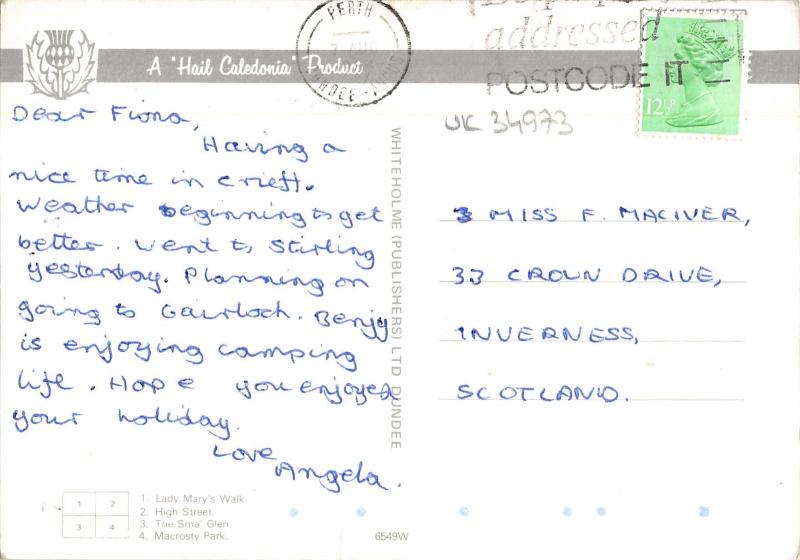 A "Hail Caledonia" Product
PERTH
addressed
POSTCODE IT
12½P
UK 34973
Dear Fiona,
Having a
nice time in Crieff.
Weather beginning to get
better. Went to Stirling
yesterday. Planning on
going to Gairloch. Benjy
is enjoying camping
life. Hope you enjoyed
your holiday.
Love
Angela.
WHITEHOLME (PUBLISHERS) LTD DUNDEE
MISS F. MACIVER,
33 CROWN DRIVE,
INVERNESS,
SCOTLAND.
1 2
3 4
1. Lady Mary's Walk.
2. High Street.
3. The Sma' Glen.
4. Macrosty Park.
6549W